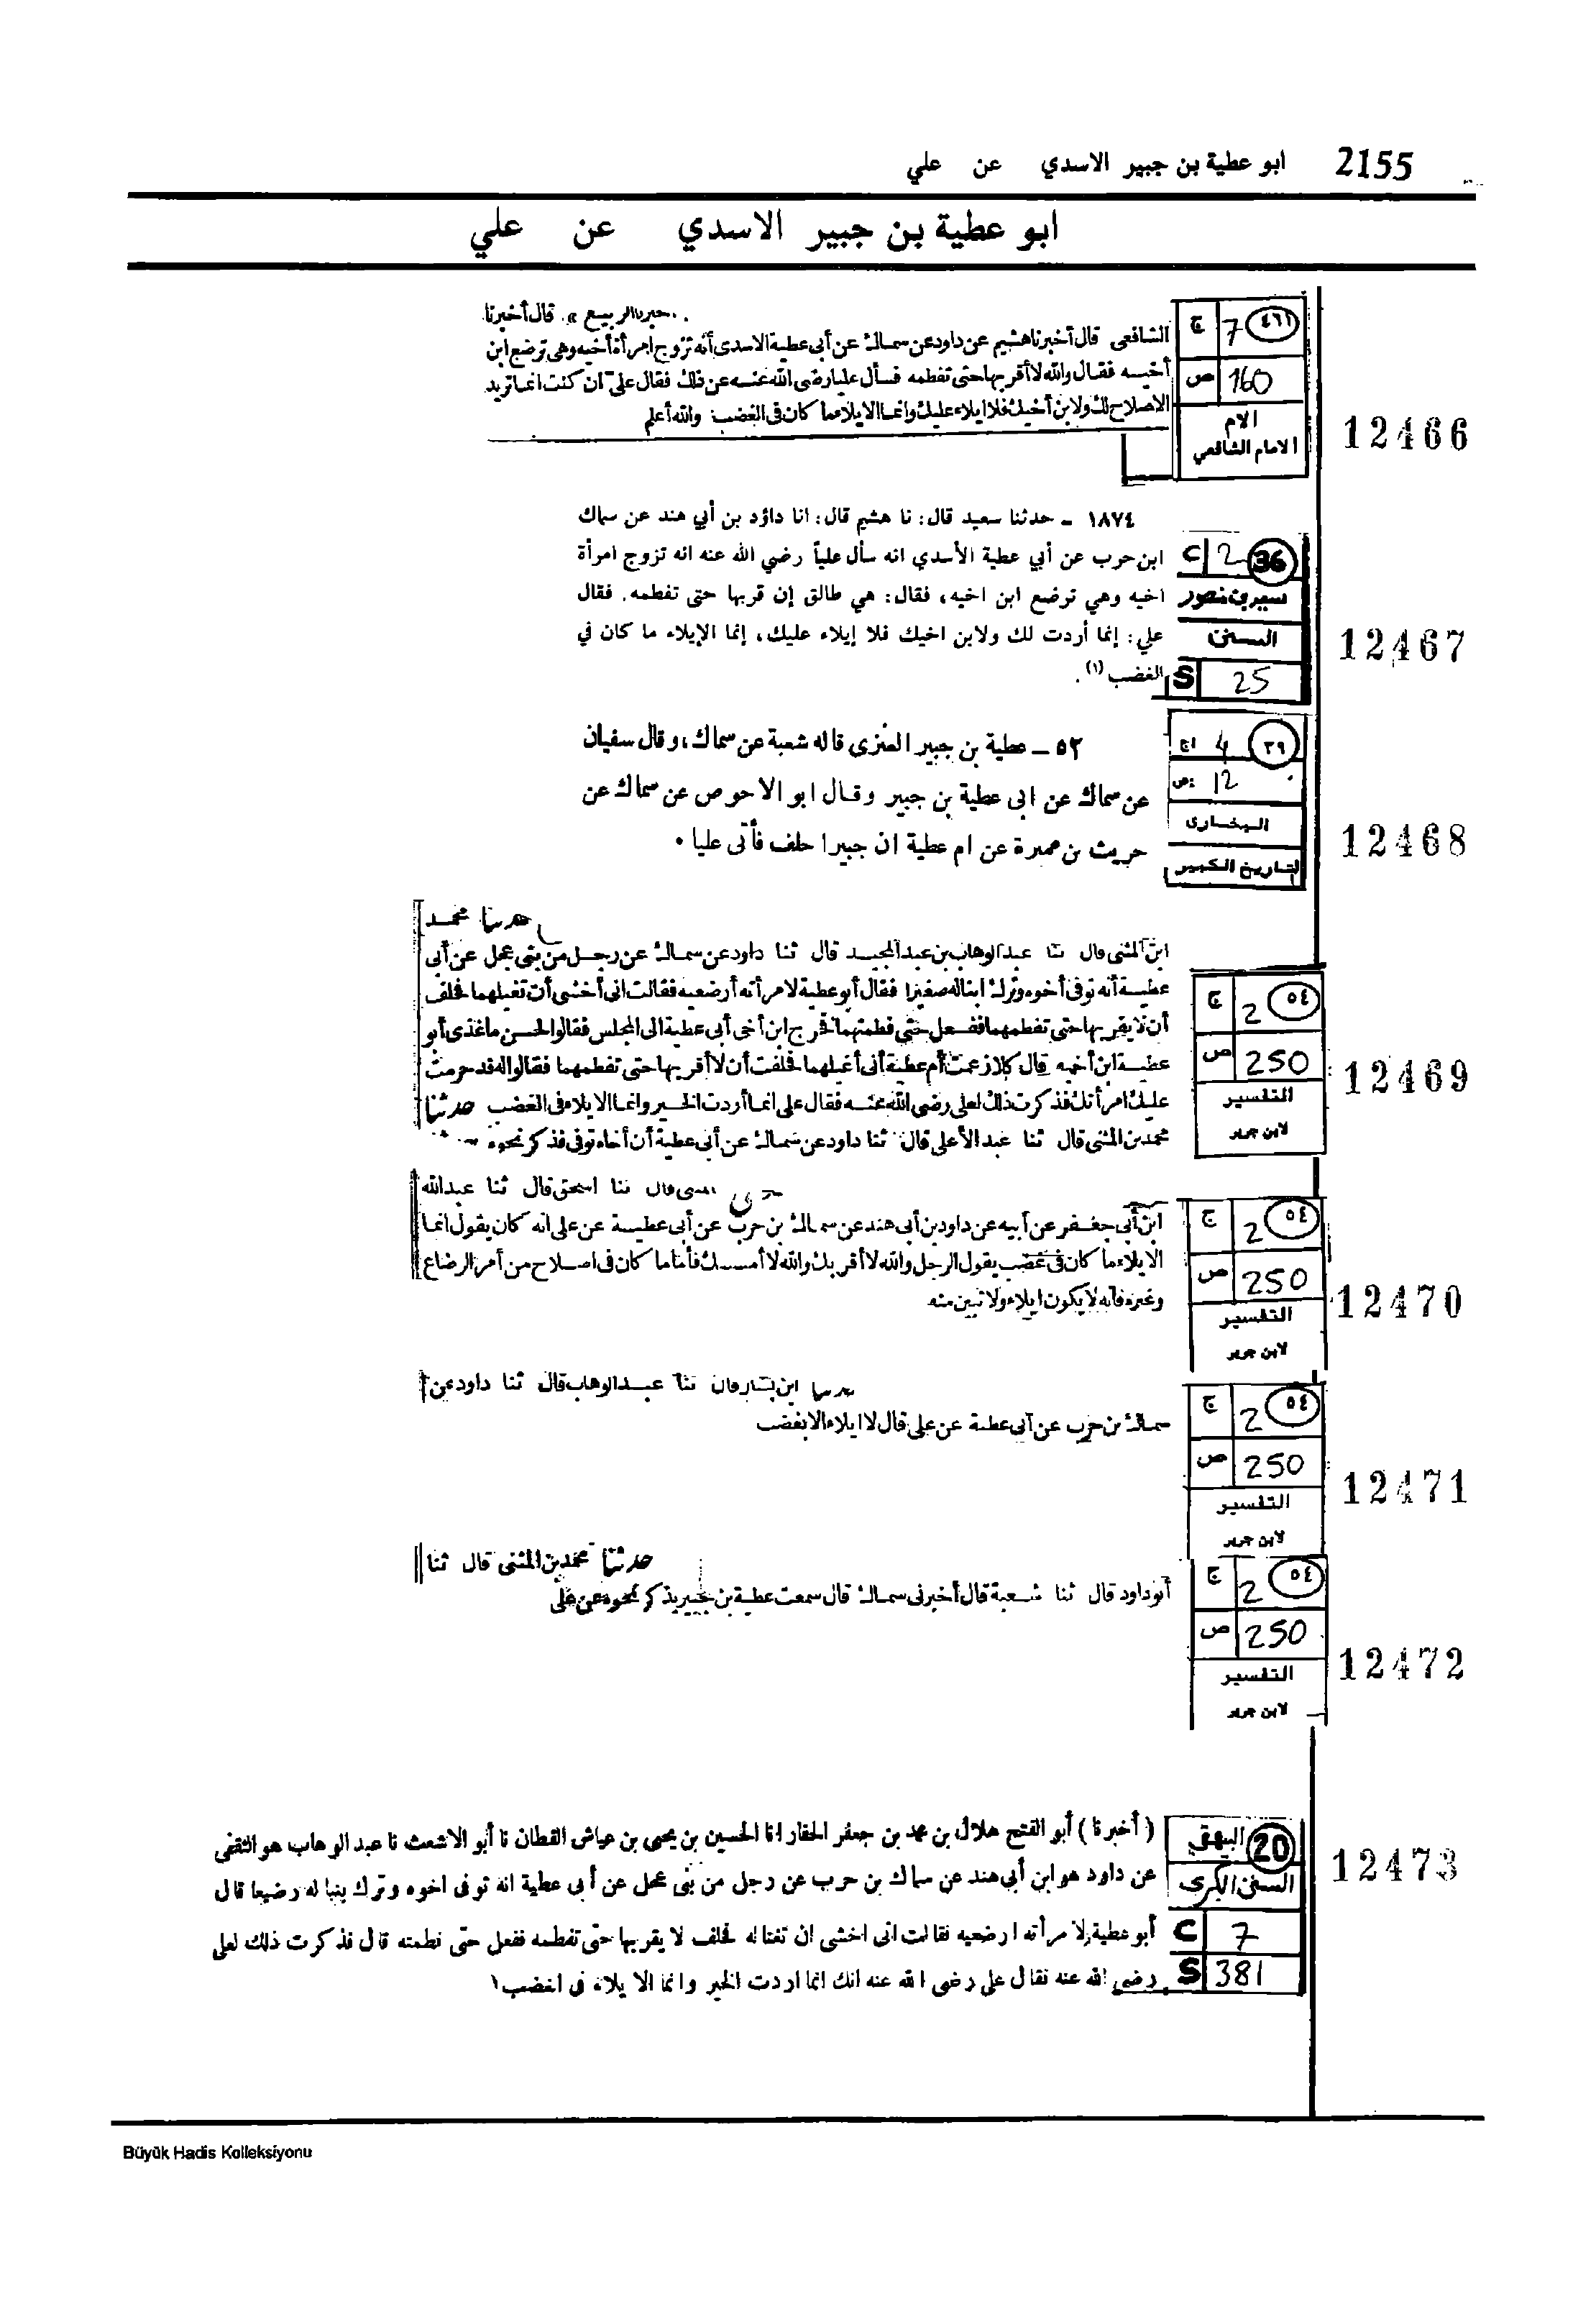 2155 ابو عطية بن جبير الاسدي عن علي
ابو عطية بن جبير الاسدي عن علي
12466
٤٦١ 7 ج
160 ص
الام
الامام الشافعي
الربيع قال أخبرنا
الشافعى قال أخبرنا هشيم عن داود عن سماك عن أبى عطية الاسدى أنه تزوج امرأة أخيه وهى ترضع ابن
أخيه فقال والله لا أقربها حتى تفطمه فسأل عليا رضى الله عنه عن ذلك فقال على ان كنت انما تريد
الاصلاح لك ولابن أخيك فلا ايلاء عليك وانما الايلاء ما كان فى الغضب والله أعلم
12467
36 2 C
سعيد بن منصور
السنن
25 S
١٨٧٤ - حدثنا سعيد قال: نا هشيم قال: انا داؤد بن أبي هند عن سماك
ابن حرب عن أبي عطية الأسدي انه سأل علياً رضي الله عنه انه تزوج امرأة
اخيه وهي ترضع ابن اخيه، فقال: هي طالق إن قربها حتى تفطمه. فقال
علي: إنما أردت لك ولابن اخيك فلا إيلاء عليك، إنما الإيلاء ما كان في
الغضب (١).
12468
٣٩ 4 ج
12 ص
البخارى
التاريخ الكبير
٥٢ - عطية بن جبير العنزى قاله شعبة عن سماك، وقال سفيان
عن سماك عن ابى عطية بن جبير وقال ابو الاحوص عن سماك عن
حريث بن عميرة عن ام عطية ان جبيرا حلف فأتى عليا ٠
12469
٥٤ 2 ج
250 ص
التفسير
لابن جرير
حدثنا محمد
ابن المثنى قال ثنا عبد الوهاب بن عبد المجيد قال ثنا داود عن سماك عن رجل من بنى عجل عن أبى
عطية أنه توفى أخوه وترك ابنا له صغيرا فقال أبو عطية لامرأته أرضعيه فقالت انى أخشى أن تغيلهما فحلف
أن لا يقربها حتى تفطمهما ففعل حتى فطمتهما فخرج ابن أخى أبى عطية الى المجلس فقالوا لحسن ما غذى أبو
عطية ابن أخيه قال كلا زعمت أم عطية أنى أغيلهما فحلفت أن لا أقربها حتى تفطمهما فقالوا له قد حرمت
عليك امرأتك فذكرت ذلك لعلى رضى الله عنه فقال على انما أردت الخير وانما الايلاء فى الغضب حدثنا
محمد بن المثنى قال ثنا عبد الأعلى قال ثنا داود عن سماك عن أبى عطية أن أخاه توفى فذكر نحوه
12470
٥٤ 2 ج
250 ص
التفسير
لابن جرير
المثنى قال ثنا اسحق قال ثنا عبد الله
ابن أبى جعفر عن أبيه عن داود بن أبى هند عن سماك بن حرب عن أبى عطية عن على انه كان يقول انما
الايلاء ما كان فى غضب يقول الرجل والله لا أقربك والله لا أمسك فأما ما كان فى اصلاح من أمر الرضاع
وغيره فانه لا يكون ايلاء ولا تبين منه
12471
٥٤ 2 ج
250 ص
التفسير
لابن جرير
حدثنا ابن بشار قال ثنا عبد الوهاب قال ثنا داود عن
سماك بن حرب عن أبى عطية عن على قال لا ايلاء الا بغضب
12472
٥٤ 2 ج
250 ص
التفسير
لابن جرير
حدثنا محمد بن المثنى قال ثنا
أبو داود قال ثنا شعبة قال أخبرنى سماك قال سمعت عطية بن جبير يذكر نحوه عن على
12473
20 البيهقي
السنن الكبرى
7 C
381 S
( أخبرنا ) أبو الفتح هلال بن محمد بن جعفر الحفار انا الحسين بن يحيى بن عياش القطان نا أبو الاشعث نا عبد الوهاب هو الثقفى
عن داود هو ابن أبي هند عن سماك بن حرب عن رجل من بنى عجل عن أبى عطية انه توفى اخوه وترك بنيا له رضيعا قال
أبو عطية لامرأته ارضعيه فقالت انى اخشى ان تغتاله فحلف لا يقربها حتى تفطمه ففعل حتى فطمته قال فذكرت ذلك لعلى
رضى الله عنه فقال على رضى الله عنه انك انما اردت الخير وانما الايلاء فى الغضب ١
Büyük Hadis Kolleksiyonu